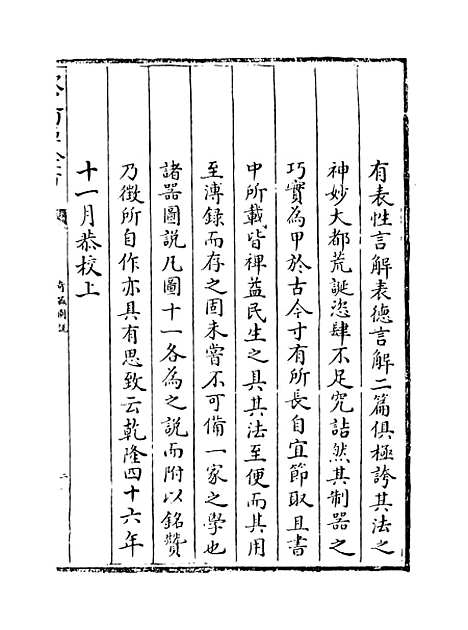 有表性言解表德言解二篇俱極誇其法之
神妙大都荒誕恣肆不足究詰然其制器之
巧實為甲於古今寸有所長自宜節取且書
中所載皆裨益民生之具其法至便而其用
至溥錄而存之固未嘗不可備一家之學也
諸器圖說凡圖十一各為之說而附以銘贊
乃徵所自作亦具有思致云乾隆四十六年
十一月恭校上
奇器圖說